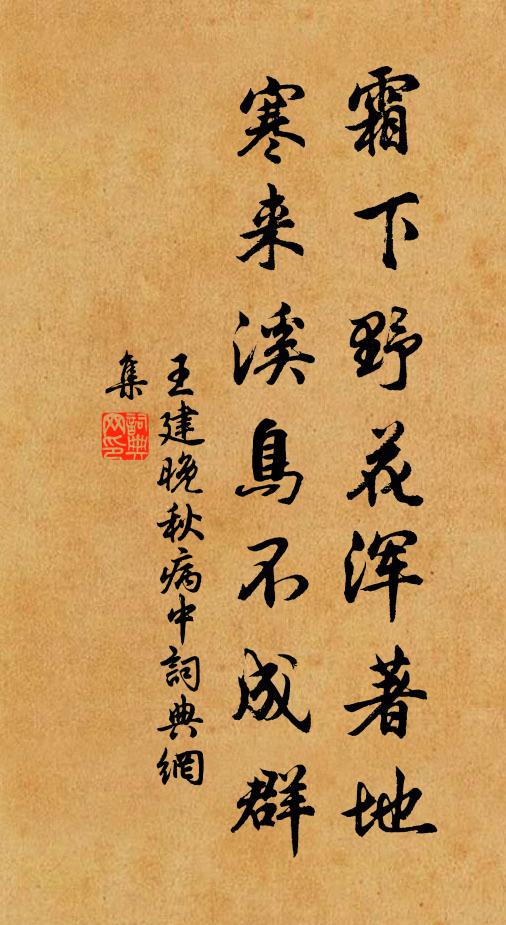 霜下野花浑著地
寒来溪鳥不成群
王建晚秋病中詞典網
集
詞典
网印